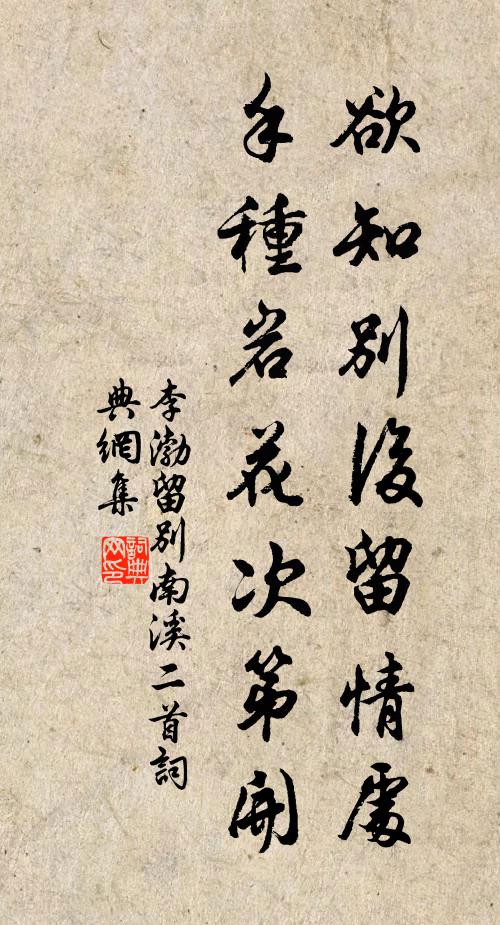 欲知别後留情處
手種岩花次第開
李渤留别南溪二首詞
典網集
詞典
网印